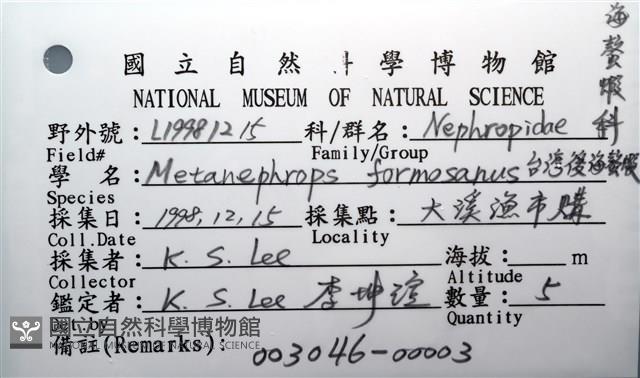 國立自然科學博物館
NATIONAL MUSEUM OF NATURAL SCIENCE
海螯蝦科
野外號：L19981215 科/群名：Nephropidae
Field# Family/Group
學 名：Metanephrops formosanus 台灣後海螯蝦
Species
採集日：1998,12,15 採集點：大溪漁市購
Coll.Date Locality
採集者：K. S. Lee 海拔： m
Collector Altitude
鑑定者：K. S. Lee 李坤瑄 數量：5
Det.by Quantity
國立自然科學博物館
NATIONAL MUSEUM OF NATURAL SCIENCE
備註(Remarks)：003046-00003